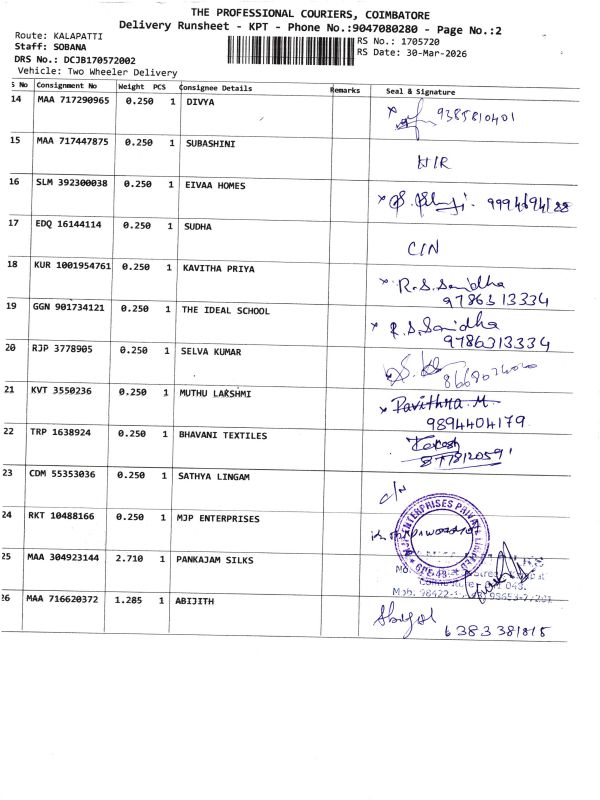 THE PROFESSIONAL COURIERS, COIMBATORE
Delivery Runsheet - KPT - Phone No.:9047080280 - Page No.:2
Route: KALAPATTI
RS No.: 1705720
Staff: SOBANA
RS Date: 30-Mar-2026
DRS No.: DCJB170572002
Vehicle: Two Wheeler Delivery
S No Consignment No Weight PCS Consignee Details Remarks Seal & Signature
14 MAA 717290965 0.250 1 DIVYA 9385810401
15 MAA 717447875 0.250 1 SUBASHINI H/R
16 SLM 392300038 0.250 1 EIVAA HOMES
17 EDQ 16144114 0.250 1 SUDHA C/N
18 KUR 1001954761 0.250 1 KAVITHA PRIYA R.S.Sanidha
9786313334
19 GGN 901734121 0.250 1 THE IDEAL SCHOOL R.S.Sanidha
9786313334
20 RJP 3778905 0.250 1 SELVA KUMAR
21 KVT 3550236 0.250 1 MUTHU LAKSHMI Pavithra.M.
9894404179
22 TRP 1638924 0.250 1 BHAVANI TEXTILES
23 CDM 55353036 0.250 1 SATHYA LINGAM C/N
24 RKT 10488166 0.250 1 MJP ENTERPRISES
MJP ENTERPRISES PRIVATE LIMITED
25 MAA 304923144 2.710 1 PANKAJAM SILKS
26 MAA 716620372 1.285 1 ABIJITH
6383381815